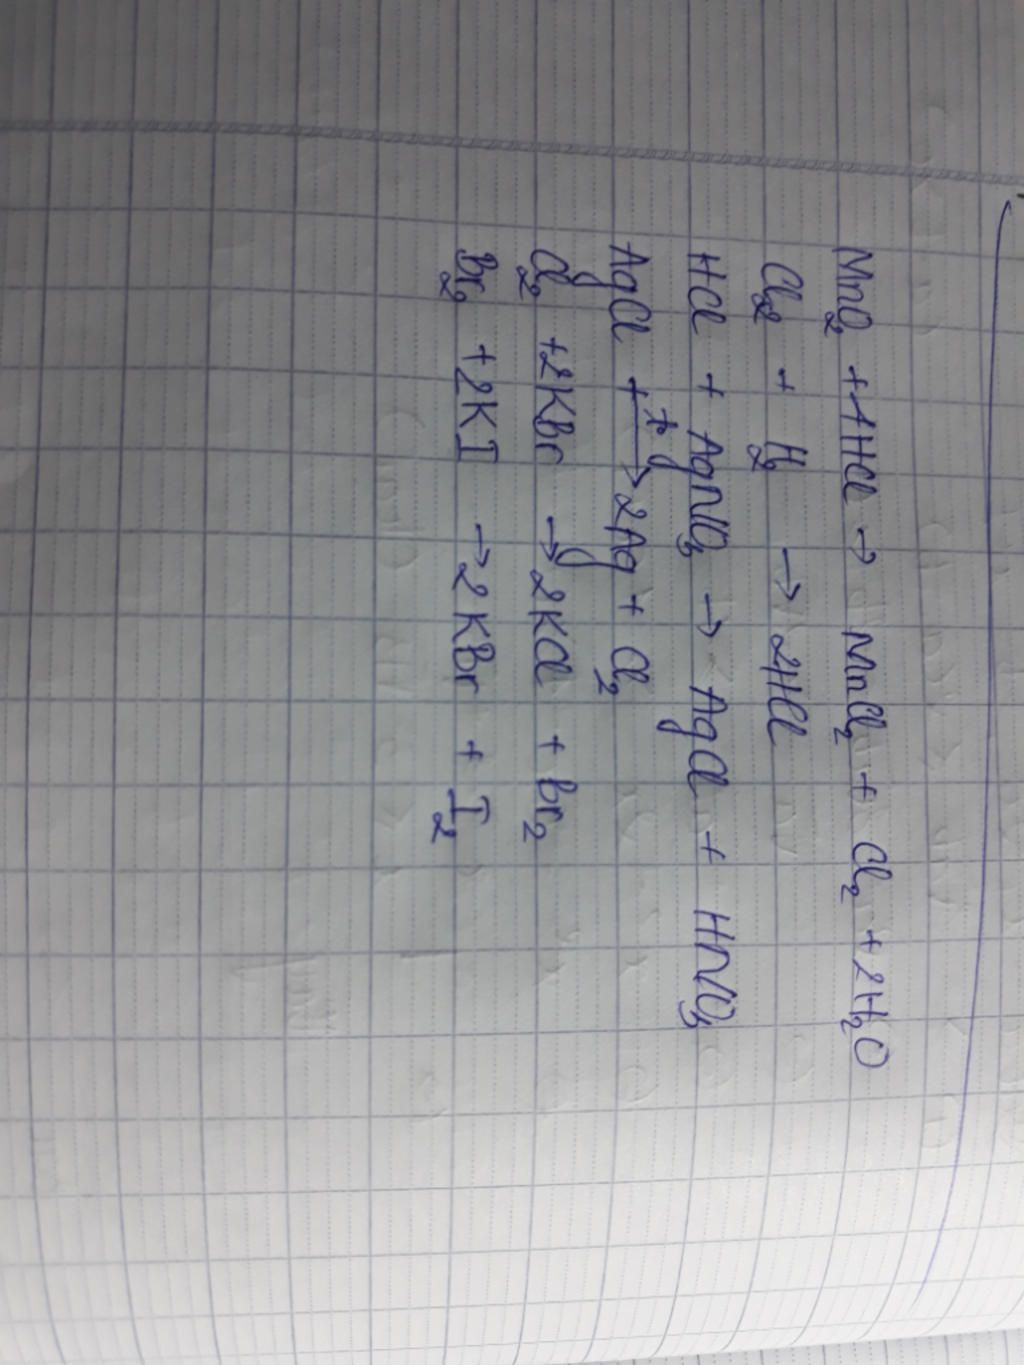 MnO₂ + 4HCl → MnCl₂ + Cl₂ + 2H₂O
Cl₂ + H₂ → 2HCl
HCl + AgNO₃ → AgCl + HNO₃
AgCl + t° → 2Ag + Cl₂
Cl₂ + 2KBr → 2KCl + Br₂
Br₂ + 2KI → 2KBr + I₂